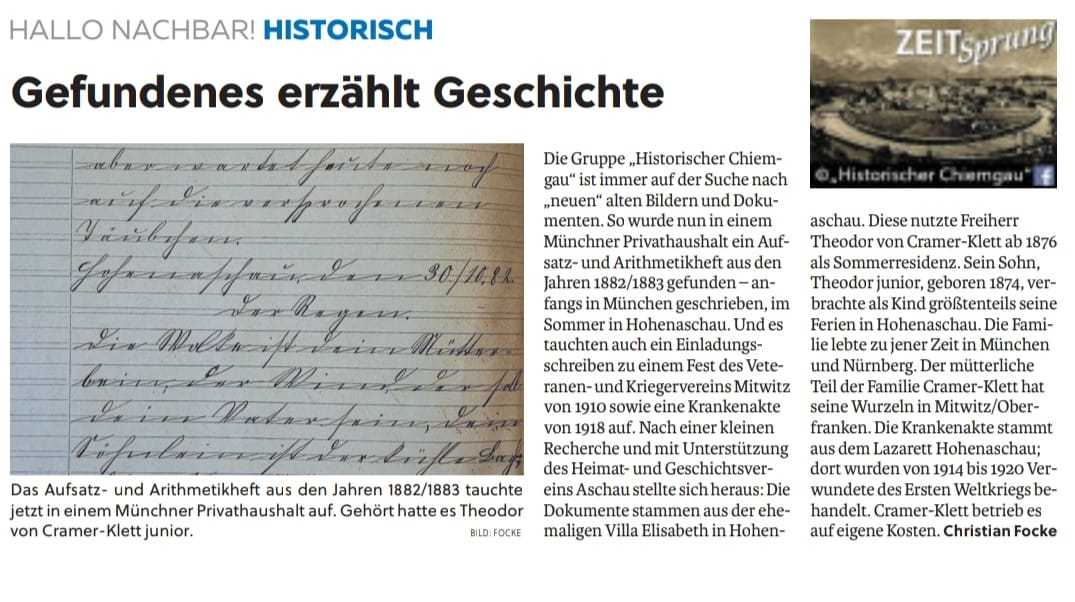 HALLO NACHBAR! HISTORISCH
Gefundenes erzählt Geschichte
aber wartet heute noch
auf die versprochenen
Täubchen.
Hohenaschau, den 30./10.82.
Der Regen.
Die Wolke ist dein Mütter-
lein, der Wind, der soll
dein Vater sein, dein
Söhnlein ist der kühle Bach,
Das Aufsatz- und Arithmetikheft aus den Jahren 1882/1883 tauchte
jetzt in einem Münchner Privathaushalt auf. Gehört hatte es Theodor
von Cramer-Klett junior.
BILD: FOCKE
Die Gruppe „Historischer Chiem-
gau“ ist immer auf der Suche nach
„neuen“ alten Bildern und Doku-
menten. So wurde nun in einem
Münchner Privathaushalt ein Auf-
satz- und Arithmetikheft aus den
Jahren 1882/1883 gefunden – an-
fangs in München geschrieben, im
Sommer in Hohenaschau. Und es
tauchten auch ein Einladungs-
schreiben zu einem Fest des Vete-
ranen- und Kriegervereins Mitwitz
von 1910 sowie eine Krankenakte
von 1918 auf. Nach einer kleinen
Recherche und mit Unterstützung
des Heimat- und Geschichtsver-
eins Aschau stellte sich heraus: Die
Dokumente stammen aus der ehe-
maligen Villa Elisabeth in Hohen-
ZEITSprung
©„Historischer Chiemgau“
aschau. Diese nutzte Freiherr
Theodor von Cramer-Klett ab 1876
als Sommerresidenz. Sein Sohn,
Theodor junior, geboren 1874, ver-
brachte als Kind größtenteils seine
Ferien in Hohenaschau. Die Fami-
lie lebte zu jener Zeit in München
und Nürnberg. Der mütterliche
Teil der Familie Cramer-Klett hat
seine Wurzeln in Mitwitz/Ober-
franken. Die Krankenakte stammt
aus dem Lazarett Hohenaschau;
dort wurden von 1914 bis 1920 Ver-
wundete des Ersten Weltkriegs be-
handelt. Cramer-Klett betrieb es
auf eigene Kosten. Christian Focke